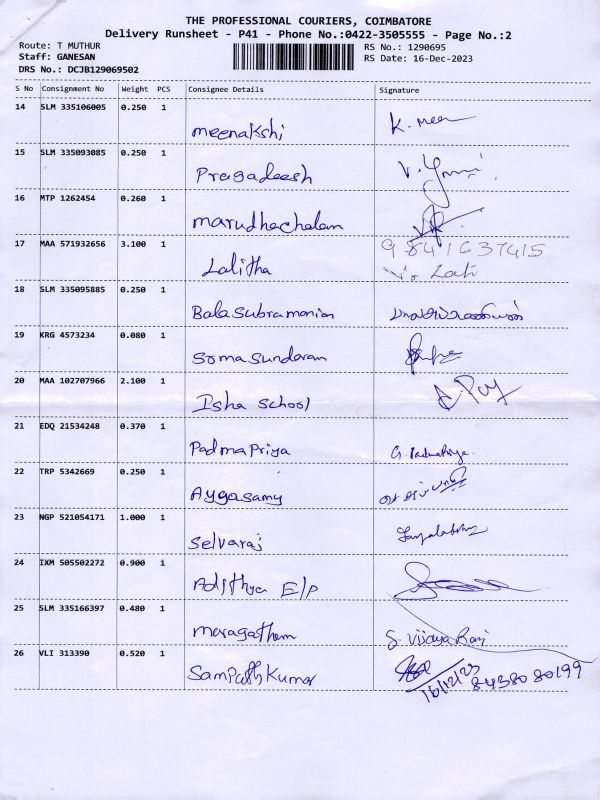 THE PROFESSIONAL COURIERS, COIMBATORE
Delivery Runsheet - P41 - Phone No.:0422-3505555 - Page No.:2
Route: T MUTHUR RS No.: 1290695
Staff: GANESAN RS Date: 16-Dec-2023
DRS No.: DCJB129069502
S No Consignment No Weight PCS Consignee Details Signature
14 SLM 335106005 0.250 1
meenakshi K. Meen
15 SLM 335093085 0.250 1
Pragadeesh
16 MTP 1262454 0.260 1
marudhachalam
17 MAA 571932656 3.100 1 9841637415
Lalitha
18 SLM 335095885 0.250 1
Balasubramanian பாலசுப்ரமணியன்
19 KRG 4573234 0.080 1
Somasundaram
20 MAA 102707966 2.100 1
Isha School
21 EDQ 21534248 0.370 1
PadmaPriya G. Padmapriya
22 TRP 5342669 0.250 1
Aygasamy
23 NGP 521054171 1.000 1
Selvaraj
24 IXM 505502272 0.900 1
Adjthya E/P
25 SLM 335166397 0.480 1
maragatham S. Vijaya Rani
26 VLI 313390 0.520 1
SampathKumar 16/12/23 8438080199